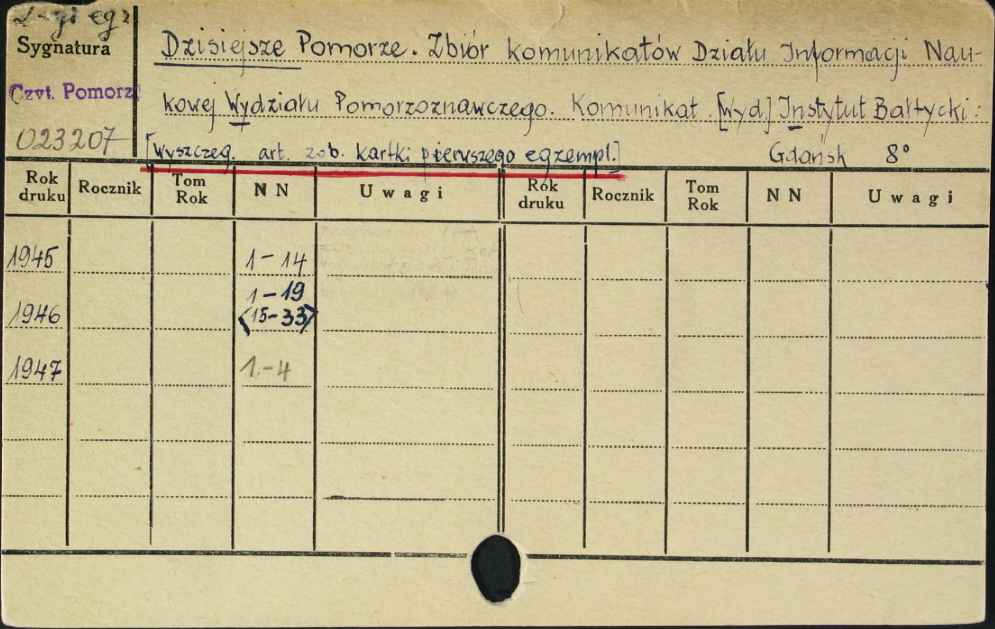 2-gi egz
Sygnatura
Czyt. Pomorz.
023207
Dzisiejsze Pomorze. Zbiór komunikatów Działu Informacji Nau-
kowej Wydziału Pomorzoznawczego. Komunikat. [Wyd.] Instytut Bałtycki:
[wyszczeg. art. zob. kartki pierwszego egzempl.] Gdańsk 8°
Rok druku Rocznik Tom Rok N N Uwagi Rok druku Rocznik Tom Rok N N Uwagi
1945 1-14
1-19
1946 <15-33>
1947 1-4